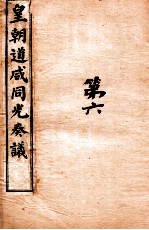 皇朝道咸同光奏議
第六